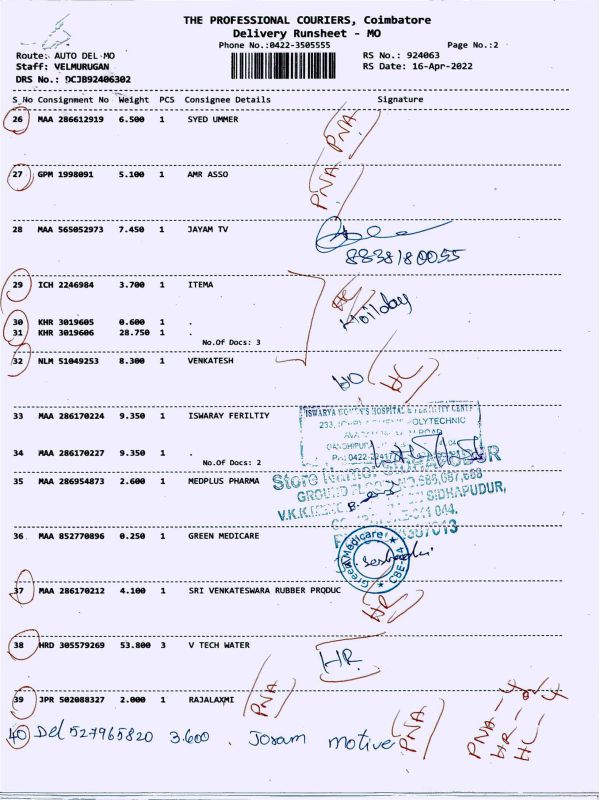 THE PROFESSIONAL COURIERS, Coimbatore
Delivery Runsheet - MO
Phone No.:0422-3505555
Page No.:2
Route: AUTO DEL-MO
RS No.: 924063
Staff: VELMURUGAN
RS Date: 16-Apr-2022
DRS No.: DCJB92406302
S_No Consignment No Weight PCS Consignee Details Signature
26 MAA 286612919 6.500 1 SYED UMMER PNA
27 GPM 1998091 5.100 1 AMR ASSO PNA
28 MAA 565052973 7.450 1 JAYAM TV
8838180055
29 ICH 2246984 3.700 1 ITEMA
30 KHR 3019605 0.600 1 .
31 KHR 3019606 28.750 1 .
No.Of Docs: 3
32 NLM 51049253 8.300 1 VENKATESH HC
33 MAA 286170224 9.350 1 ISWARAY FERILTIY
ISWARYA WOMEN'S HOSPITAL & FERTILITY CENTR
POLYTECHNIC
34 MAA 286170227 9.350 1 .
No.Of Docs: 2
35 MAA 286954873 2.600 1 MEDPLUS PHARMA
Store
GROUND 686,687,688
V.K.K. SIDHAPUDUR,
36 MAA 852770896 0.250 1 GREEN MEDICARE
Green Medicare
37 MAA 286170212 4.100 1 SRI VENKATESWARA RUBBER PRODUC HR
38 HRD 305579269 53.800 3 V TECH WATER HR
39 JPR 502088327 2.000 1 RAJALAXMI PNA
40 Del 527965820 3.600 . Joram motive PNA
PNA - 4
HR -
HC -